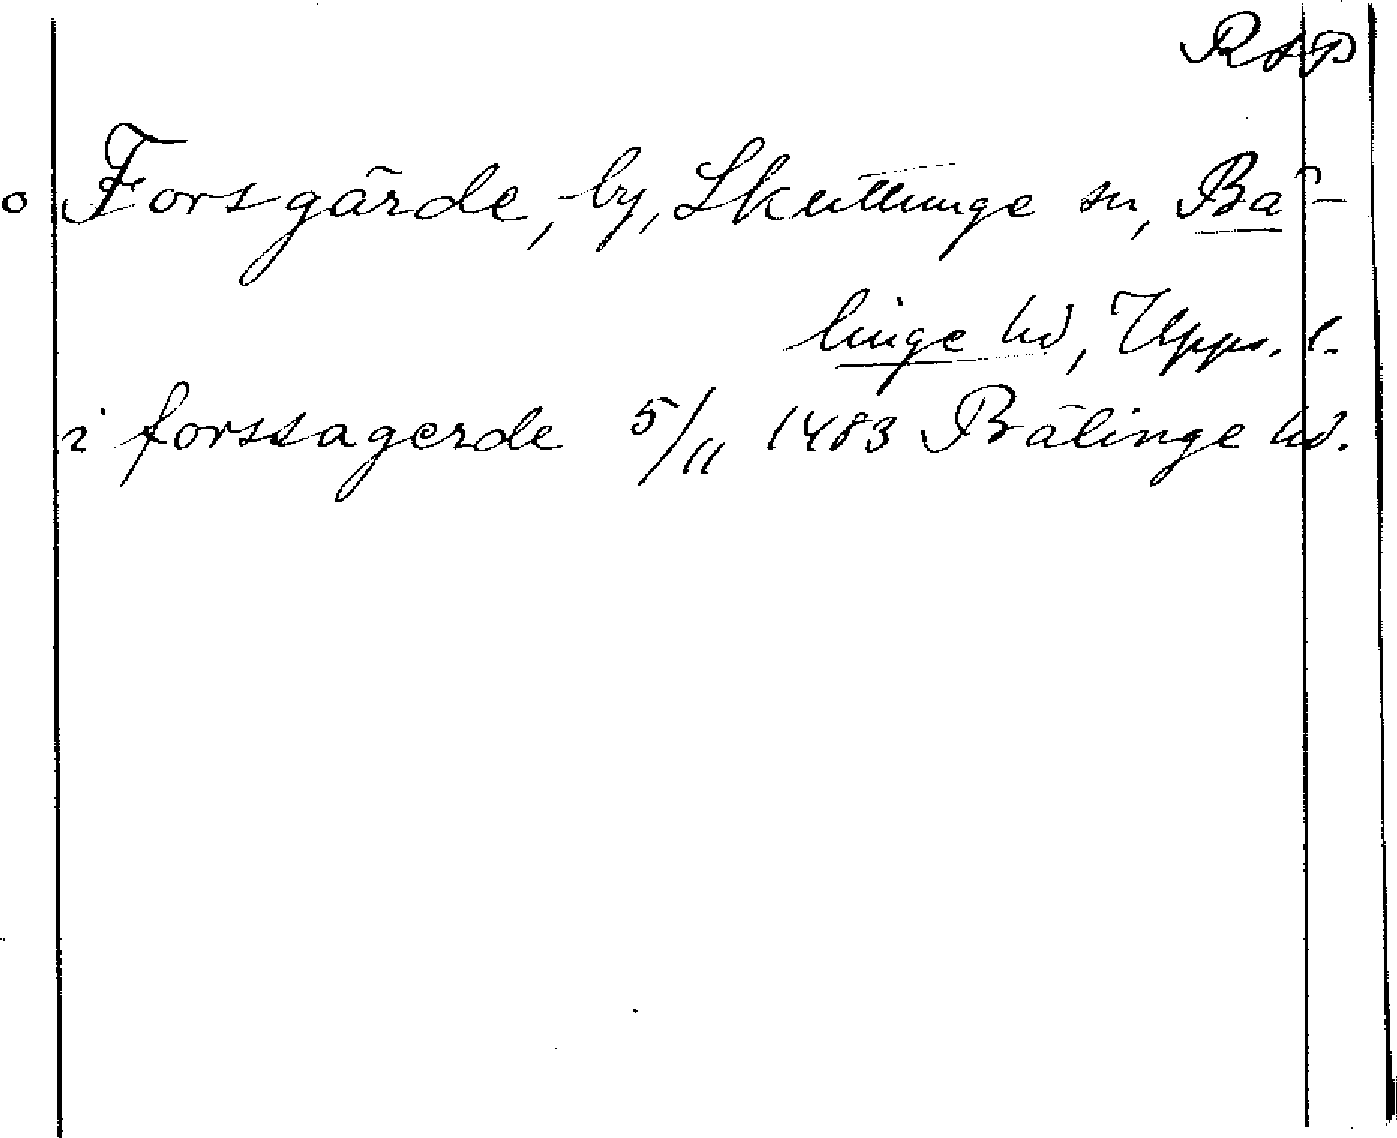 RAP
o Forsgärde, by, Skuttunge sn, Bä-
linge hd, Upps. l.
i forssagerde 5/11 1483 Bälinge hd.